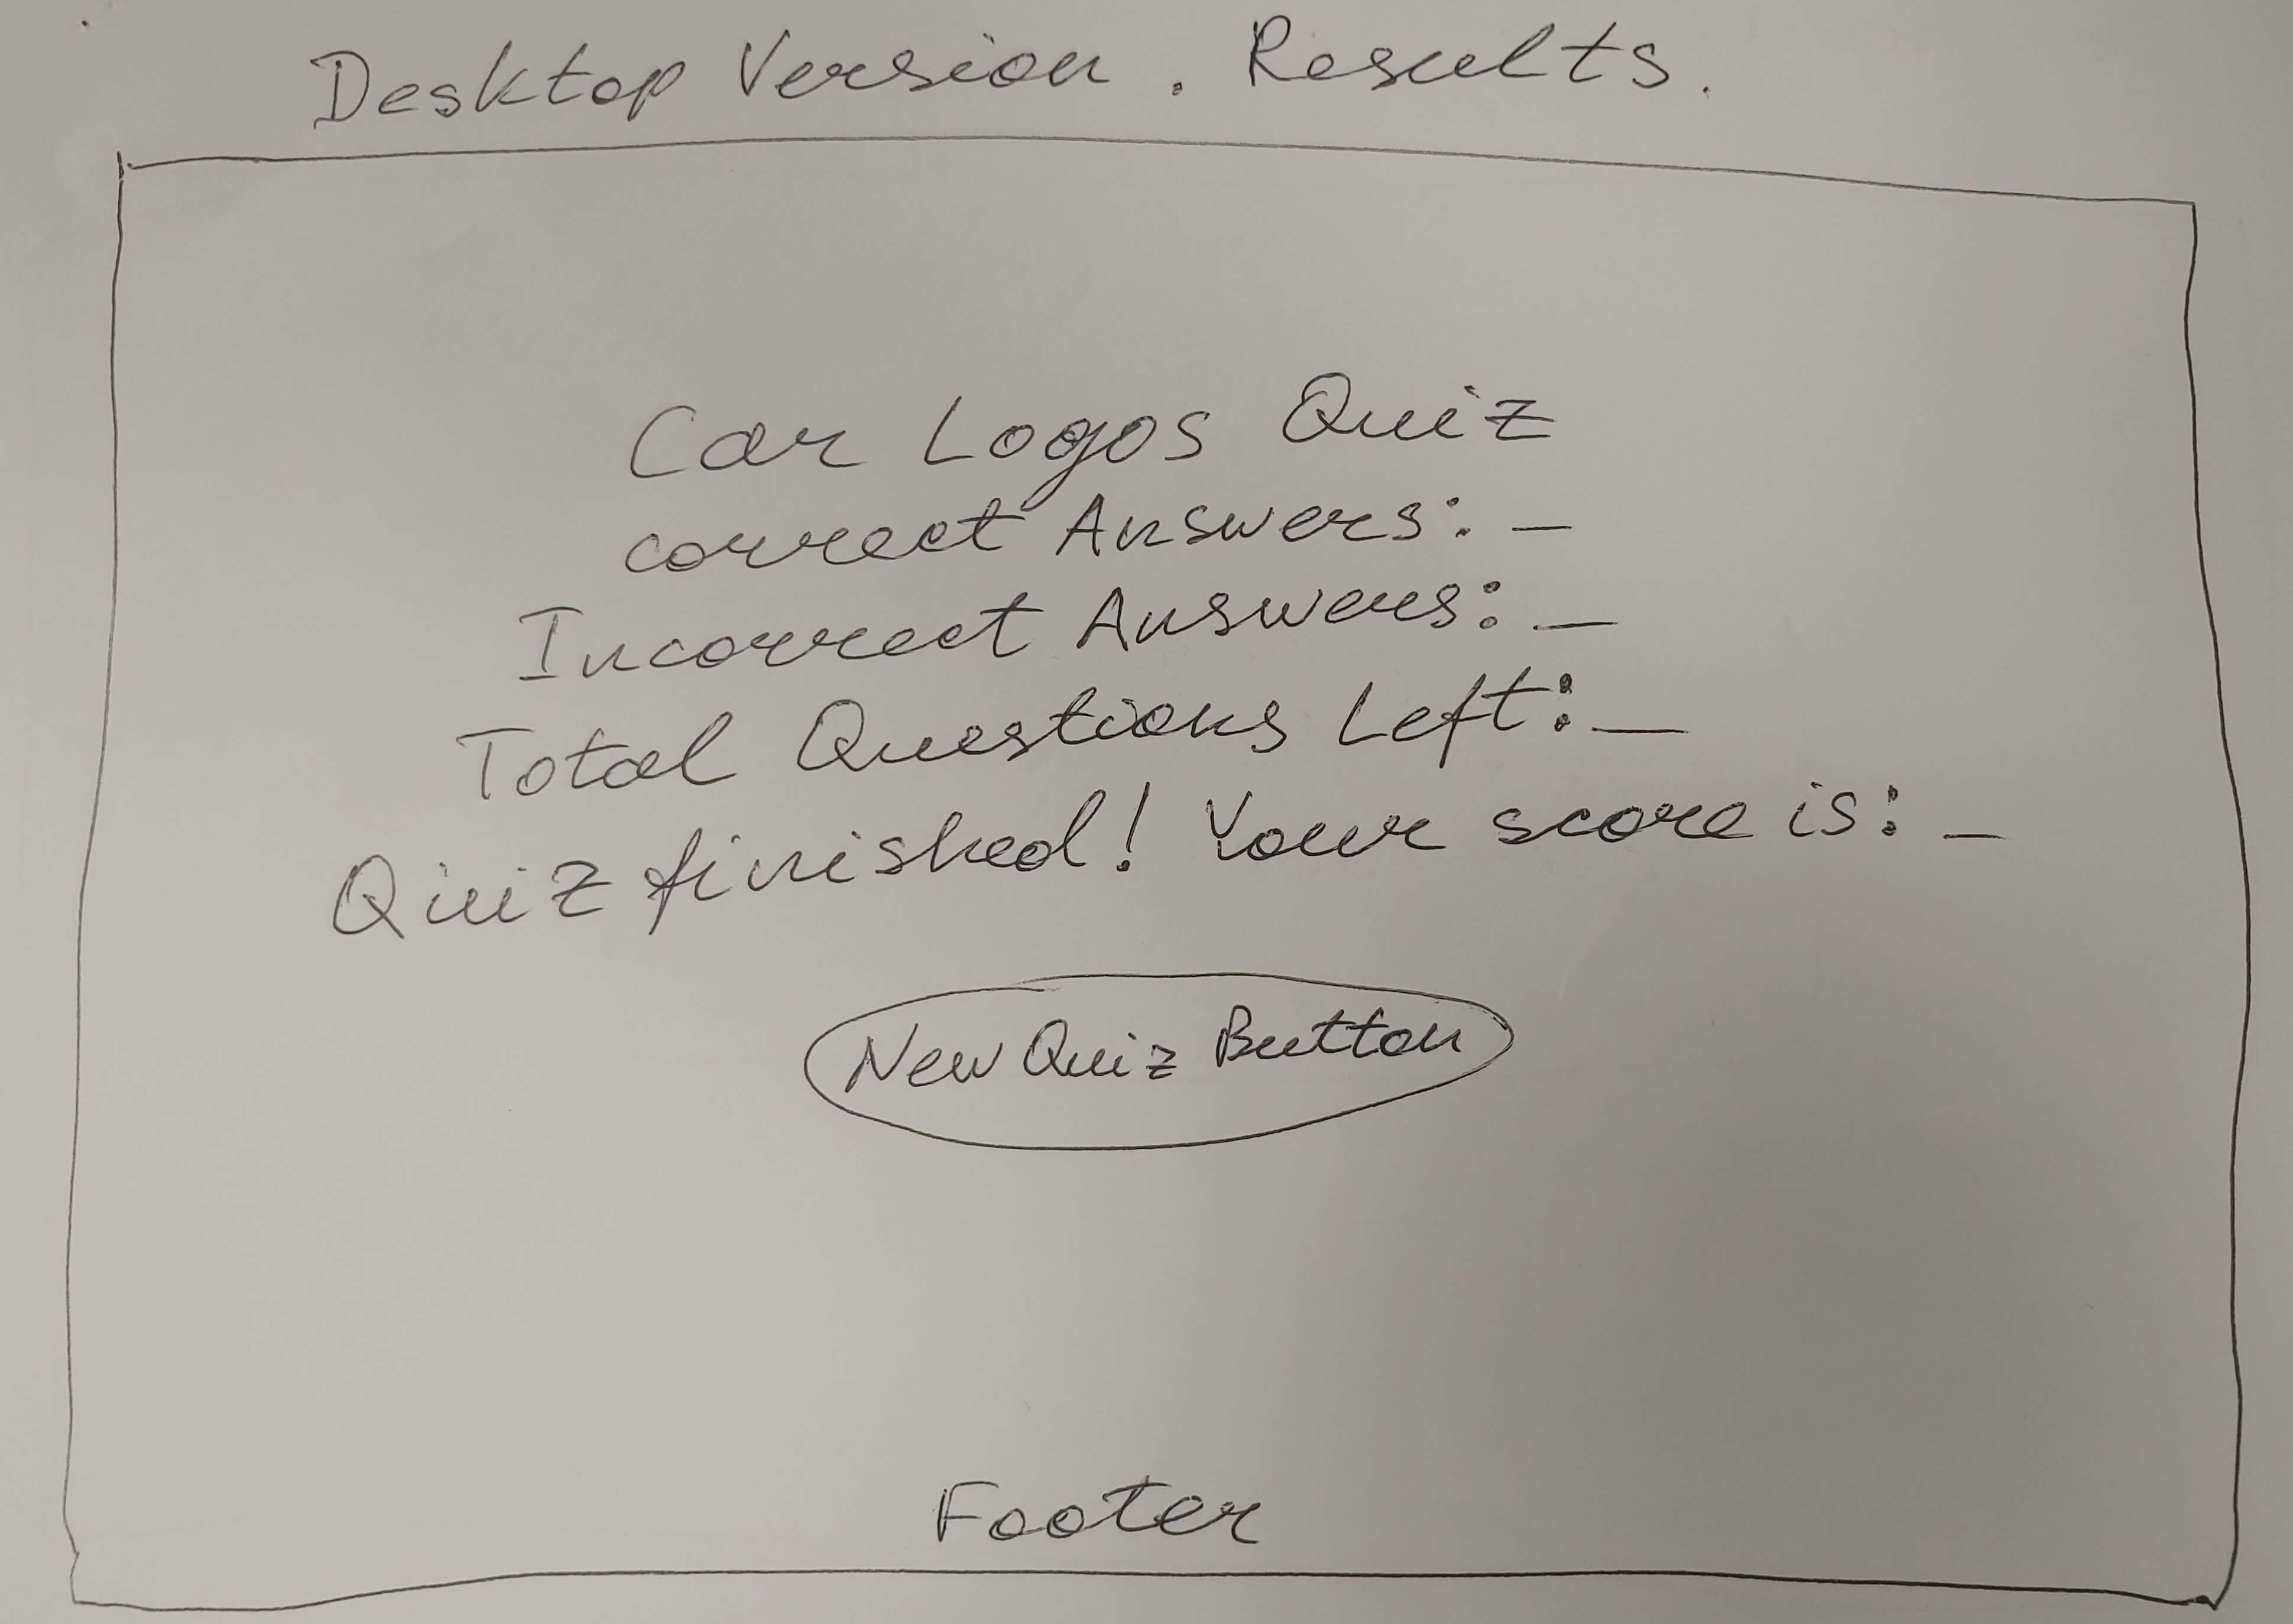 Desktop Version. Results.
Car Logos Quiz
correct Answers: _
Incorrect Answers: _
Total Questions Left: _
Quiz finished! Your score is: _
New Quiz Button
Footer